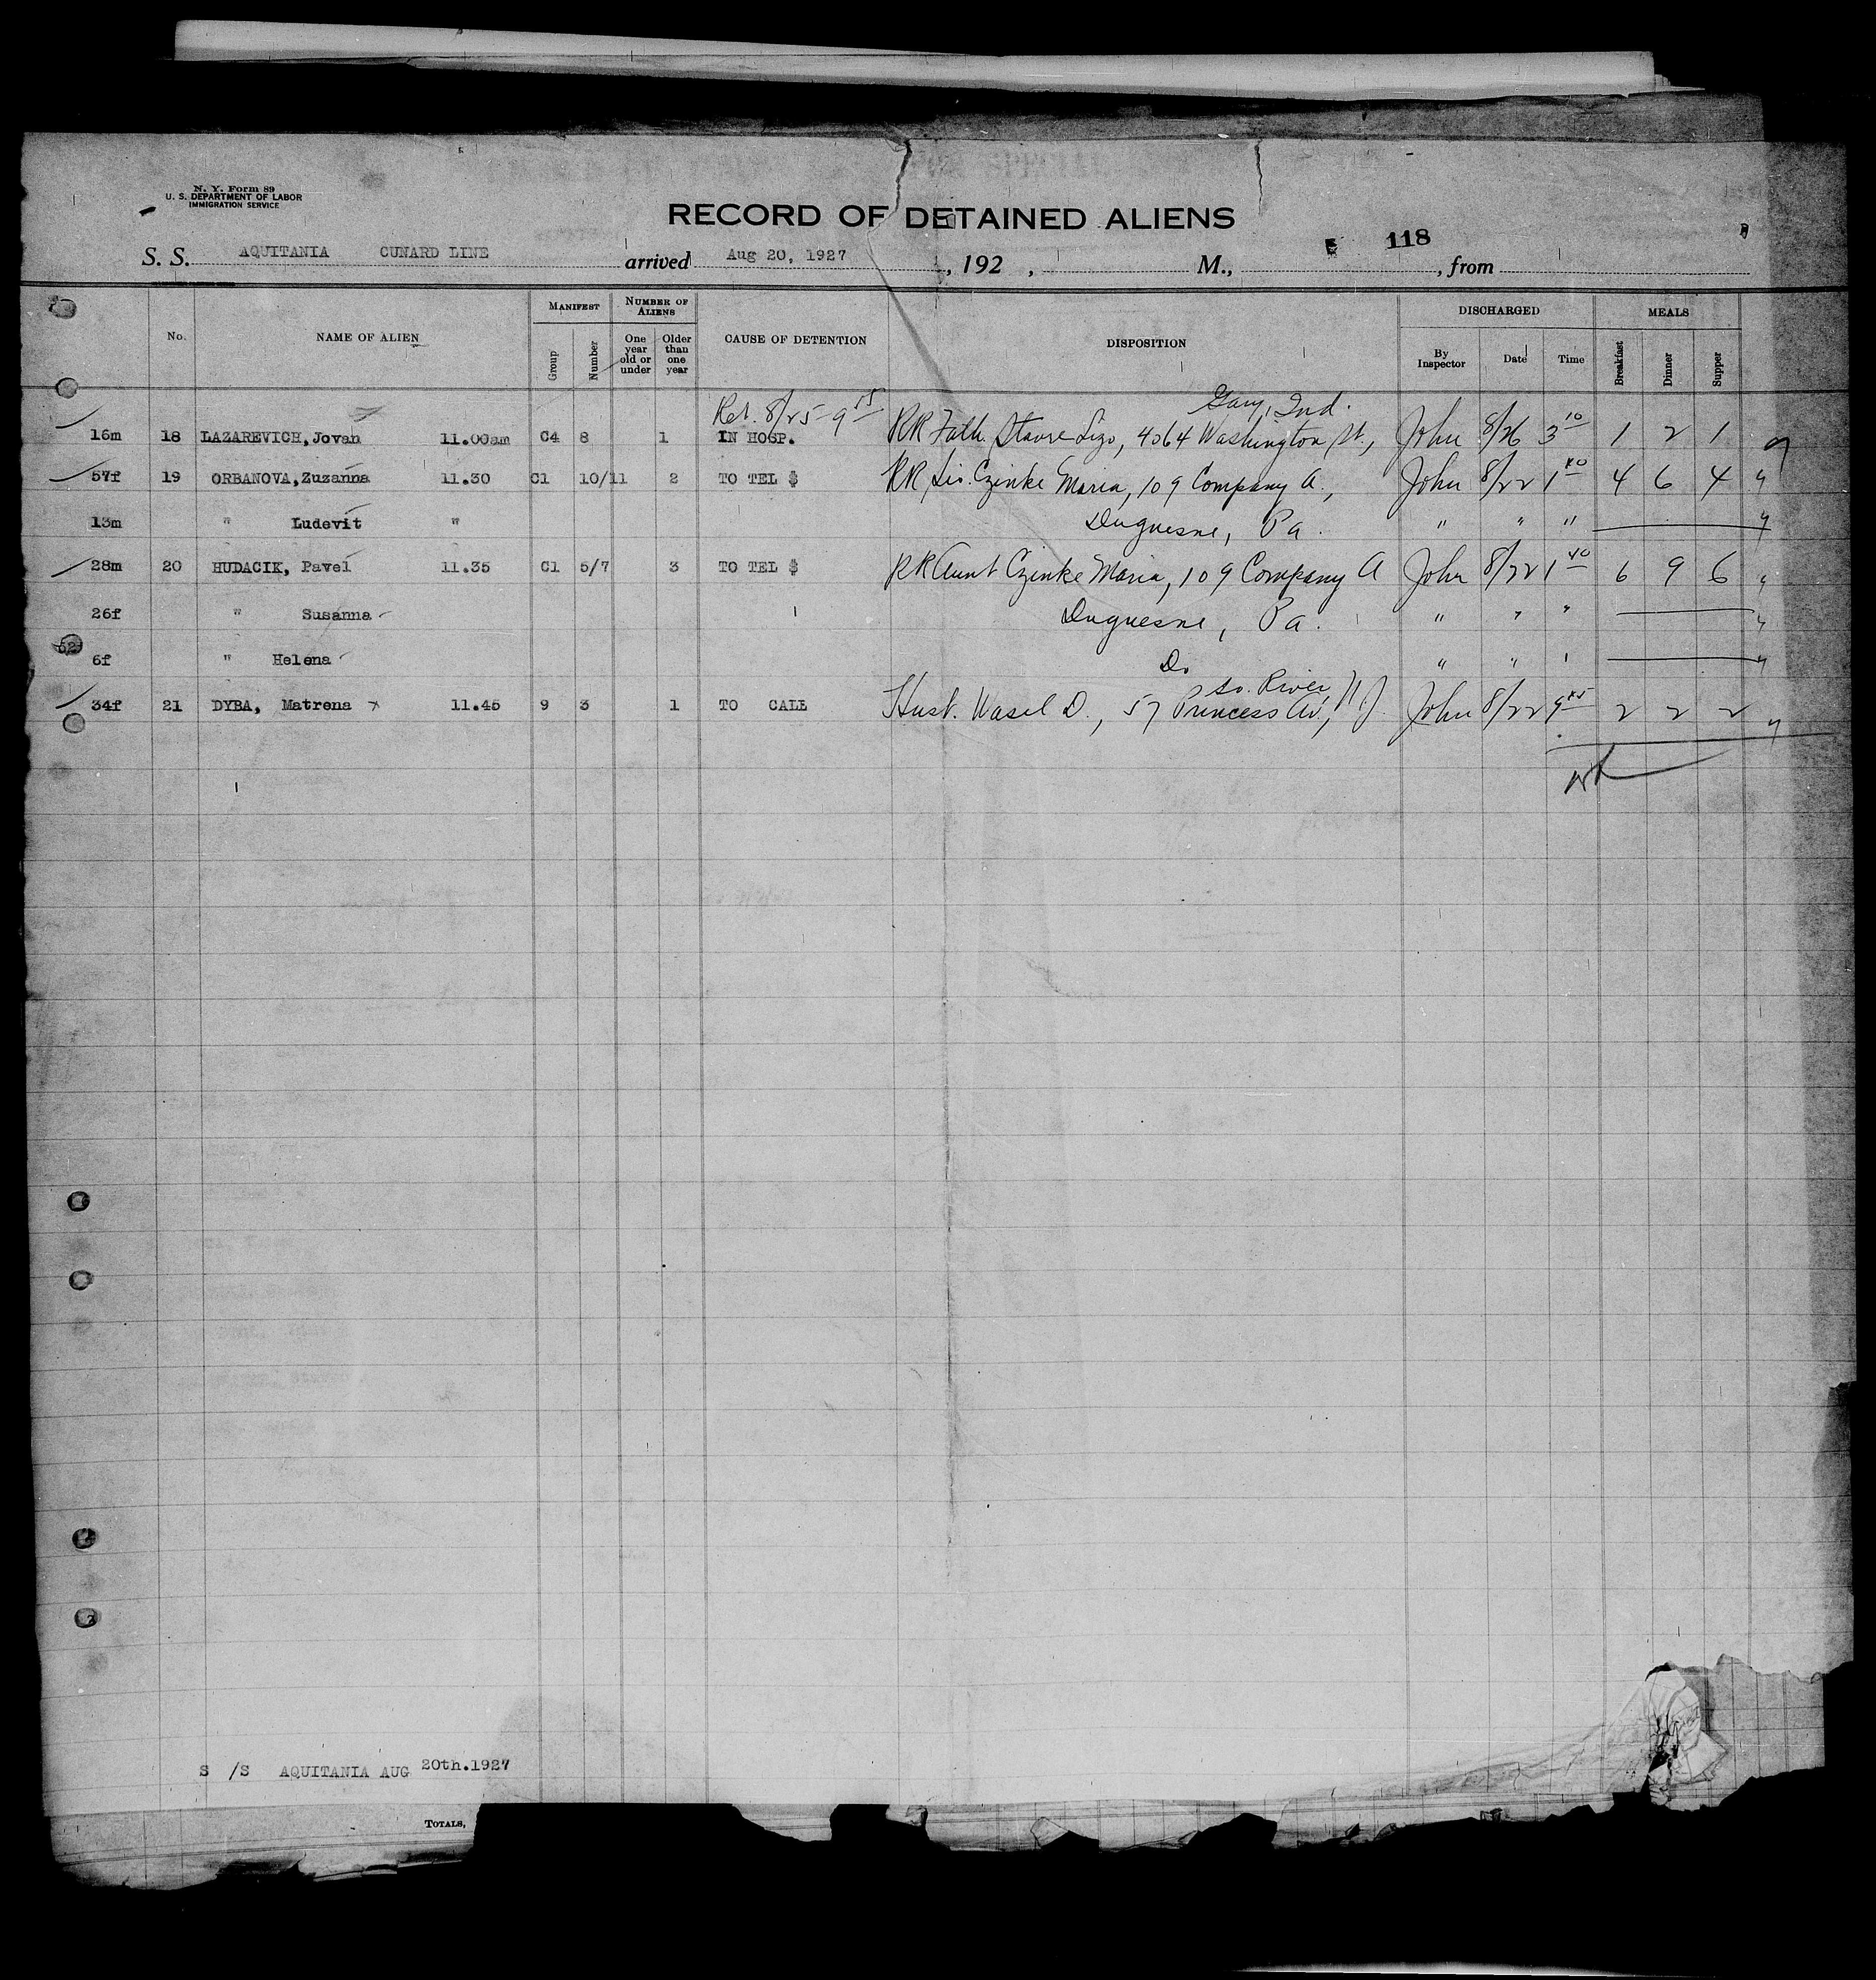 N. Y. Form 89
U. S. DEPARTMENT OF LABOR
IMMIGRATION SERVICE
RECORD OF DETAINED ALIENS
118
S. S. AQUITANIA CUNARD LINE arrived Aug 20, 1927, 192 , M., , from
No. NAME OF ALIEN MANIFEST Group Number NUMBER OF ALIENS One year old or under Older than one year CAUSE OF DETENTION DISPOSITION DISCHARGED By Inspector Date Time MEALS Breakfast Dinner Supper
8/25 9 55 Gary, Ind.
16m 18 LAZAREVICH, Jovan 11.00am C4 8 1 IN HOSP. RR Fath. 4064 Washington St., John 8/26 3 10 1 2 1
57f 19 ORBANOVA, Zuzanna 11.30 C1 10/11 2 TO TEL $ RR Sis. Czinke Maria, 109 Company A., John 8/22 1 40 4 6 4
13m " Ludevit " Duquesne, Pa. " " "
28m 20 HUDACIK, Pavel 11.35 C1 5/7 3 TO TEL $ RR Aunt Czinke Maria, 109 Company A John 8/22 1 40 6 9 6
26f " Susanna Duquesne, Pa. " " "
6f " Helena Do " "
So. River,
34f 21 DYBA, Matrena 11.45 9 3 1 TO CALL Husb. Wasel D., 57 Princess Av., N J. John 8/22 9 45 2 2 2
S /S AQUITANIA AUG 20th.1927
TOTALS,